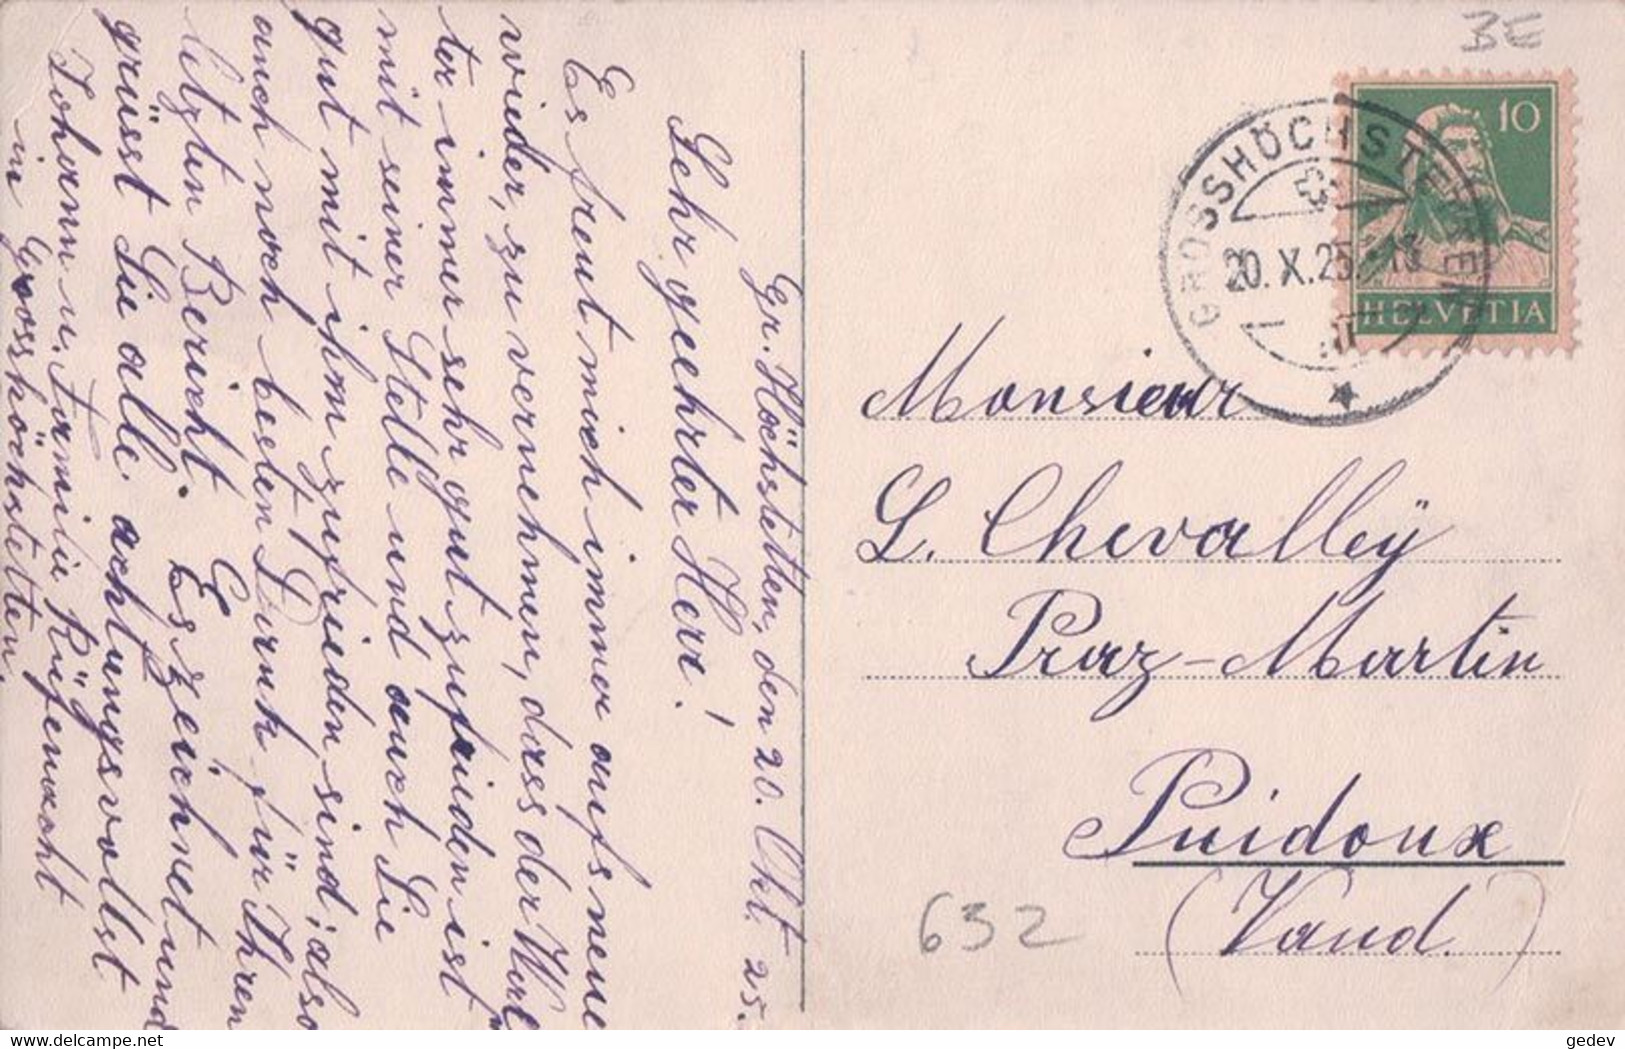 Gr. Höchstetten, den 20. Okt. 25.
Sehr geehrter Herr!
Es freut mich immer aufs neue
wieder, zu vernehmen, dass der Wal
ter immer sehr gut zufrieden ist
mit seiner Stelle und auch Sie
gut mit ihm zufrieden sind, also
auch noch besten Dank für Ihren
letzten Bericht. Es zeichnet und
grüsst Sie alle achtungsvollst
Johann u. Familie Rüfenacht
in Grosshöchstetten.
BE
10
HELVETIA
GROSSHÖCHSTETTEN
20. X. 25
Monsieur
L. Chevalleÿ
Praz-Martin
Puidoux
(Vaud.)
632
www.delcampe.net
gedev